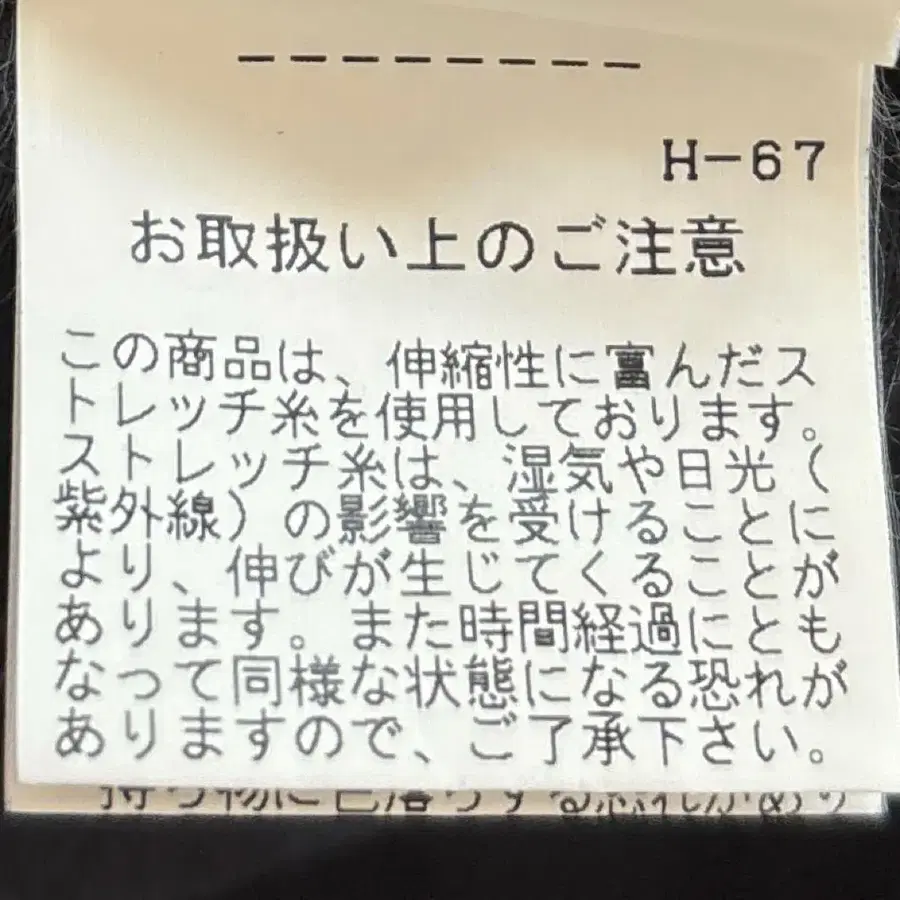 ---------
H-67
お取扱い上のご注意
この商品は、伸縮性に富んだス
トレッチ糸を使用しております。
ストレッチ糸は、湿気や日光(
紫外線)の影響を受けることに
より、伸びが生じてくることが
あります。また時間経過にとも
なって同様な状態になる恐れが
ありますので、ご了承下さい。
持ち物に色落ちする恐れがあり